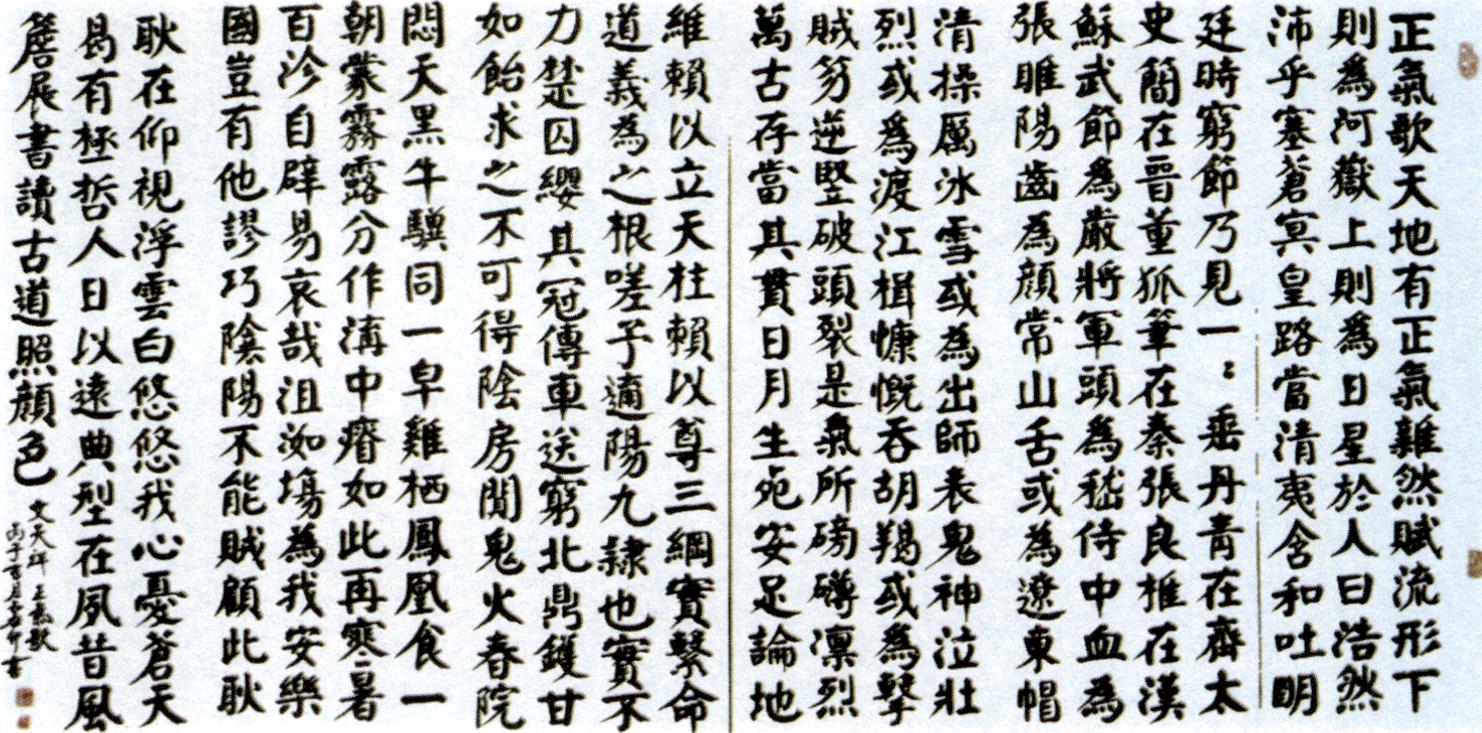 正氣歌天地有正氣雜然賦流形下
則為河嶽上則為日星於人曰浩然
沛乎塞蒼冥皇路當清夷含和吐明
廷時窮節乃見一〻垂丹青在齊太
史簡在晉董狐筆在秦張良椎在漢
蘇武節為嚴將軍頭為嵇侍中血為
張睢陽齒為顏常山舌或為遼東帽
清操厲冰雪或為出師表鬼神泣壯
烈或為渡江楫慷慨吞胡羯或為擊
賊笏逆豎破頭裂是氣所磅礴凜烈
萬古存當其貫日月生死安足論地
維賴以立天柱賴以尊三綱實繫命
道義為之根嗟予遘陽九隸也實不
力楚囚纓其冠傳車送窮北鼎鑊甘
如飴求之不可得陰房闃鬼火春院
悶天黑牛驥同一皁雞栖鳳凰食一
朝蒙霧露分作溝中瘠如此再寒暑
百沴自辟易哀哉沮洳場為我安樂
國豈有他謬巧陰陽不能賊顧此耿
耿在仰視浮雲白悠悠我心憂蒼天
曷有極哲人日以遠典型在夙昔風
簷展書讀古道照顏色
文天祥正氣歌
丙子 月 書